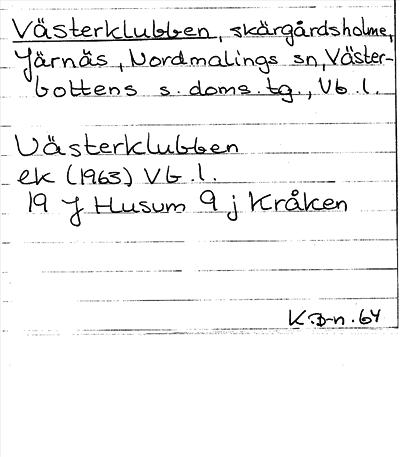 Västerklubben, skärgårdsholme,
Järnäs, Nordmalings sn, Väster-
bottens s. doms. tg., Vb. l.
Västerklubben
ek (1963) Vb. l.
19 J Husum 9 j Kråken
K.D-n. 64